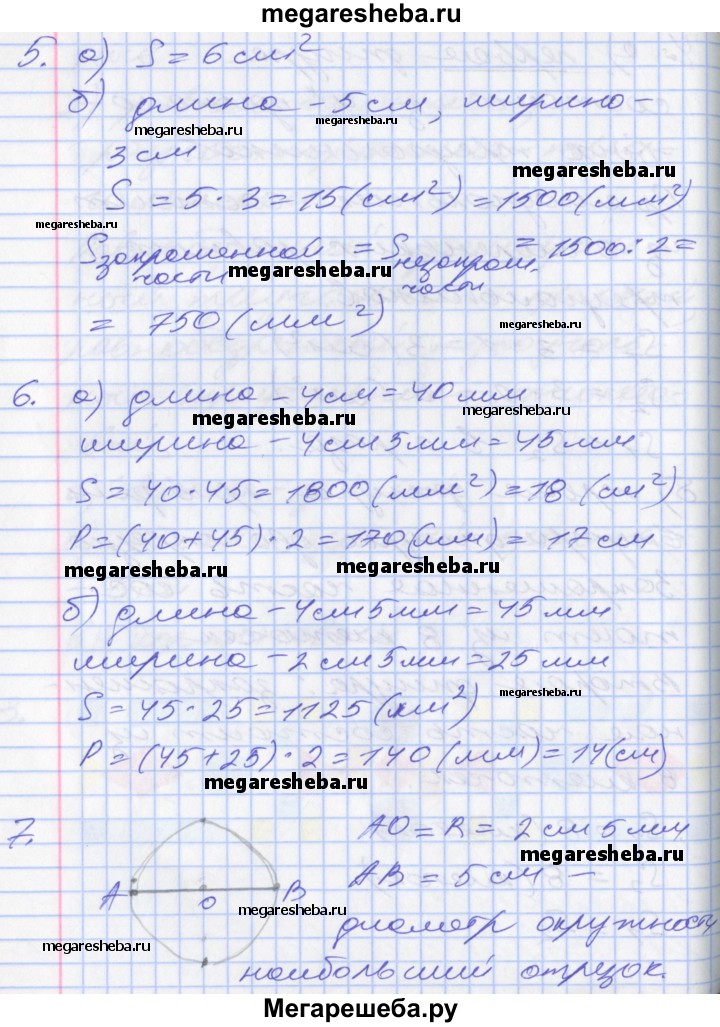 megaresheba.ru
5. а) S = 6 см²
б) длина – 5 см, ширина –
megaresheba.ru
megaresheba.ru
3 см
megaresheba.ru
S = 5 · 3 = 15 (см²) = 1500 (мм²)
megaresheba.ru
Sзакрашенной части = Sнезакраш. части = 1500 : 2 =
megaresheba.ru
= 750 (мм²)
megaresheba.ru
6. а) длина – 4 см = 40 мм
megaresheba.ru
megaresheba.ru
ширина – 4 см 5 мм = 45 мм
S = 40 · 45 = 1800 (мм²) = 18 (см²)
P = (40 + 45) · 2 = 170 (мм) = 17 см
megaresheba.ru
megaresheba.ru
б) длина – 4 см 5 мм = 45 мм
ширина – 2 см 5 мм = 25 мм
megaresheba.ru
S = 45 · 25 = 1125 (мм²)
P = (45 + 25) · 2 = 140 (мм) = 14 (см)
megaresheba.ru
7.
AO = R = 2 см 5 мм
megaresheba.ru
A O B
AB = 5 см –
megaresheba.ru
диаметр окружности
megaresheba.ru
наибольший отрезок.
Мегарешеба.ру